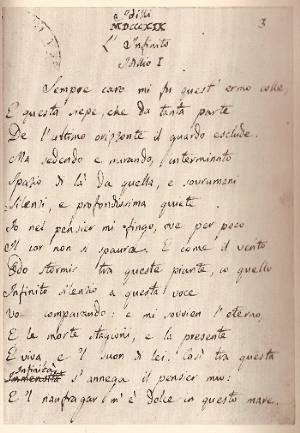 Idilli
MDCCCXIX
3
L'Infinito
Idillio I
Sempre caro mi fu quest'ermo colle,
E questa siepe, che da tanta parte
De l'ultimo orizzonte il guardo esclude.
Ma sedendo e mirando, interminato
Spazio di là da quella, e sovrumani
Silenzi, e profondissima quiete
Io nel pensier mi fingo, ove per poco
Il cor non si spaura. E come il vento
Odo stormir tra queste piante, io quello
Infinito silenzio a questa voce
Vo comparando: e mi sovvien l'eterno,
E le morte stagioni, e la presente
E viva, e 'l suon di lei. Così tra questa
Infinità
Immensità s'annega il pensier mio:
E 'l naufragar m'è dolce in questo mare.